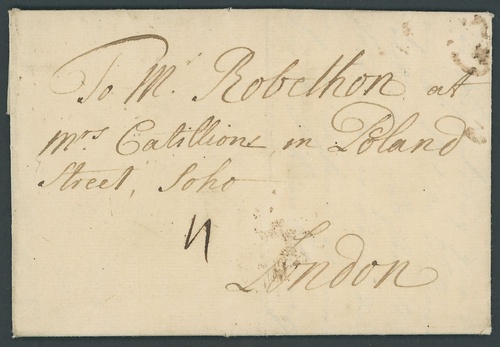 To Mr Robethon at
Mrs Catillions in Poland
Street, Soho
London